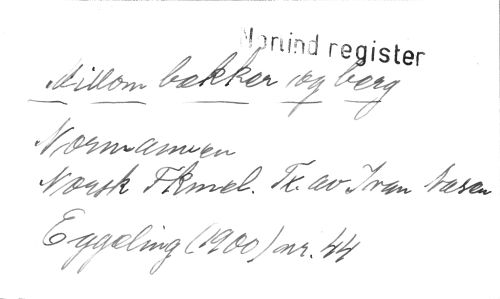 Norind register
Millom bakker og berg
Normannen
Norsk Fkmel. Tk. av Ivar Aasen
Eggeling (1900) nr. 44